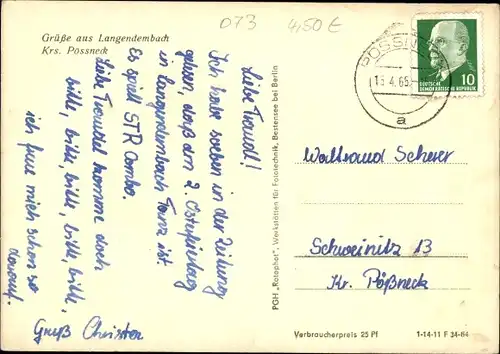 073
4,50 €
Grüße aus Langendembach
Krs. Possneck
Liebe Traudl!
Ich habe soeben in der Zeitung
gelesen, daß am 2. Osterfeiertag
in Langendembach Tanz ist.
Es spielt STR Combo.
Liebe Traudel komme doch
bitte, bitte, bitte, bitte, bitte,
ich freue mich schon so
darauf.
Gruß Christa
PGH „Rotophot", Werkstätten für Fototechnik, Bestensee bei Berlin
PÖSSN
13.4.65
a
DEUTSCHE
DEMOKRATISCHE REPUBLIK
10
Waltraud Scherer
Schweinitz 13
Kr. Pößneck
Verbraucherpreis 25 Pf
1-14-11 F 34-64